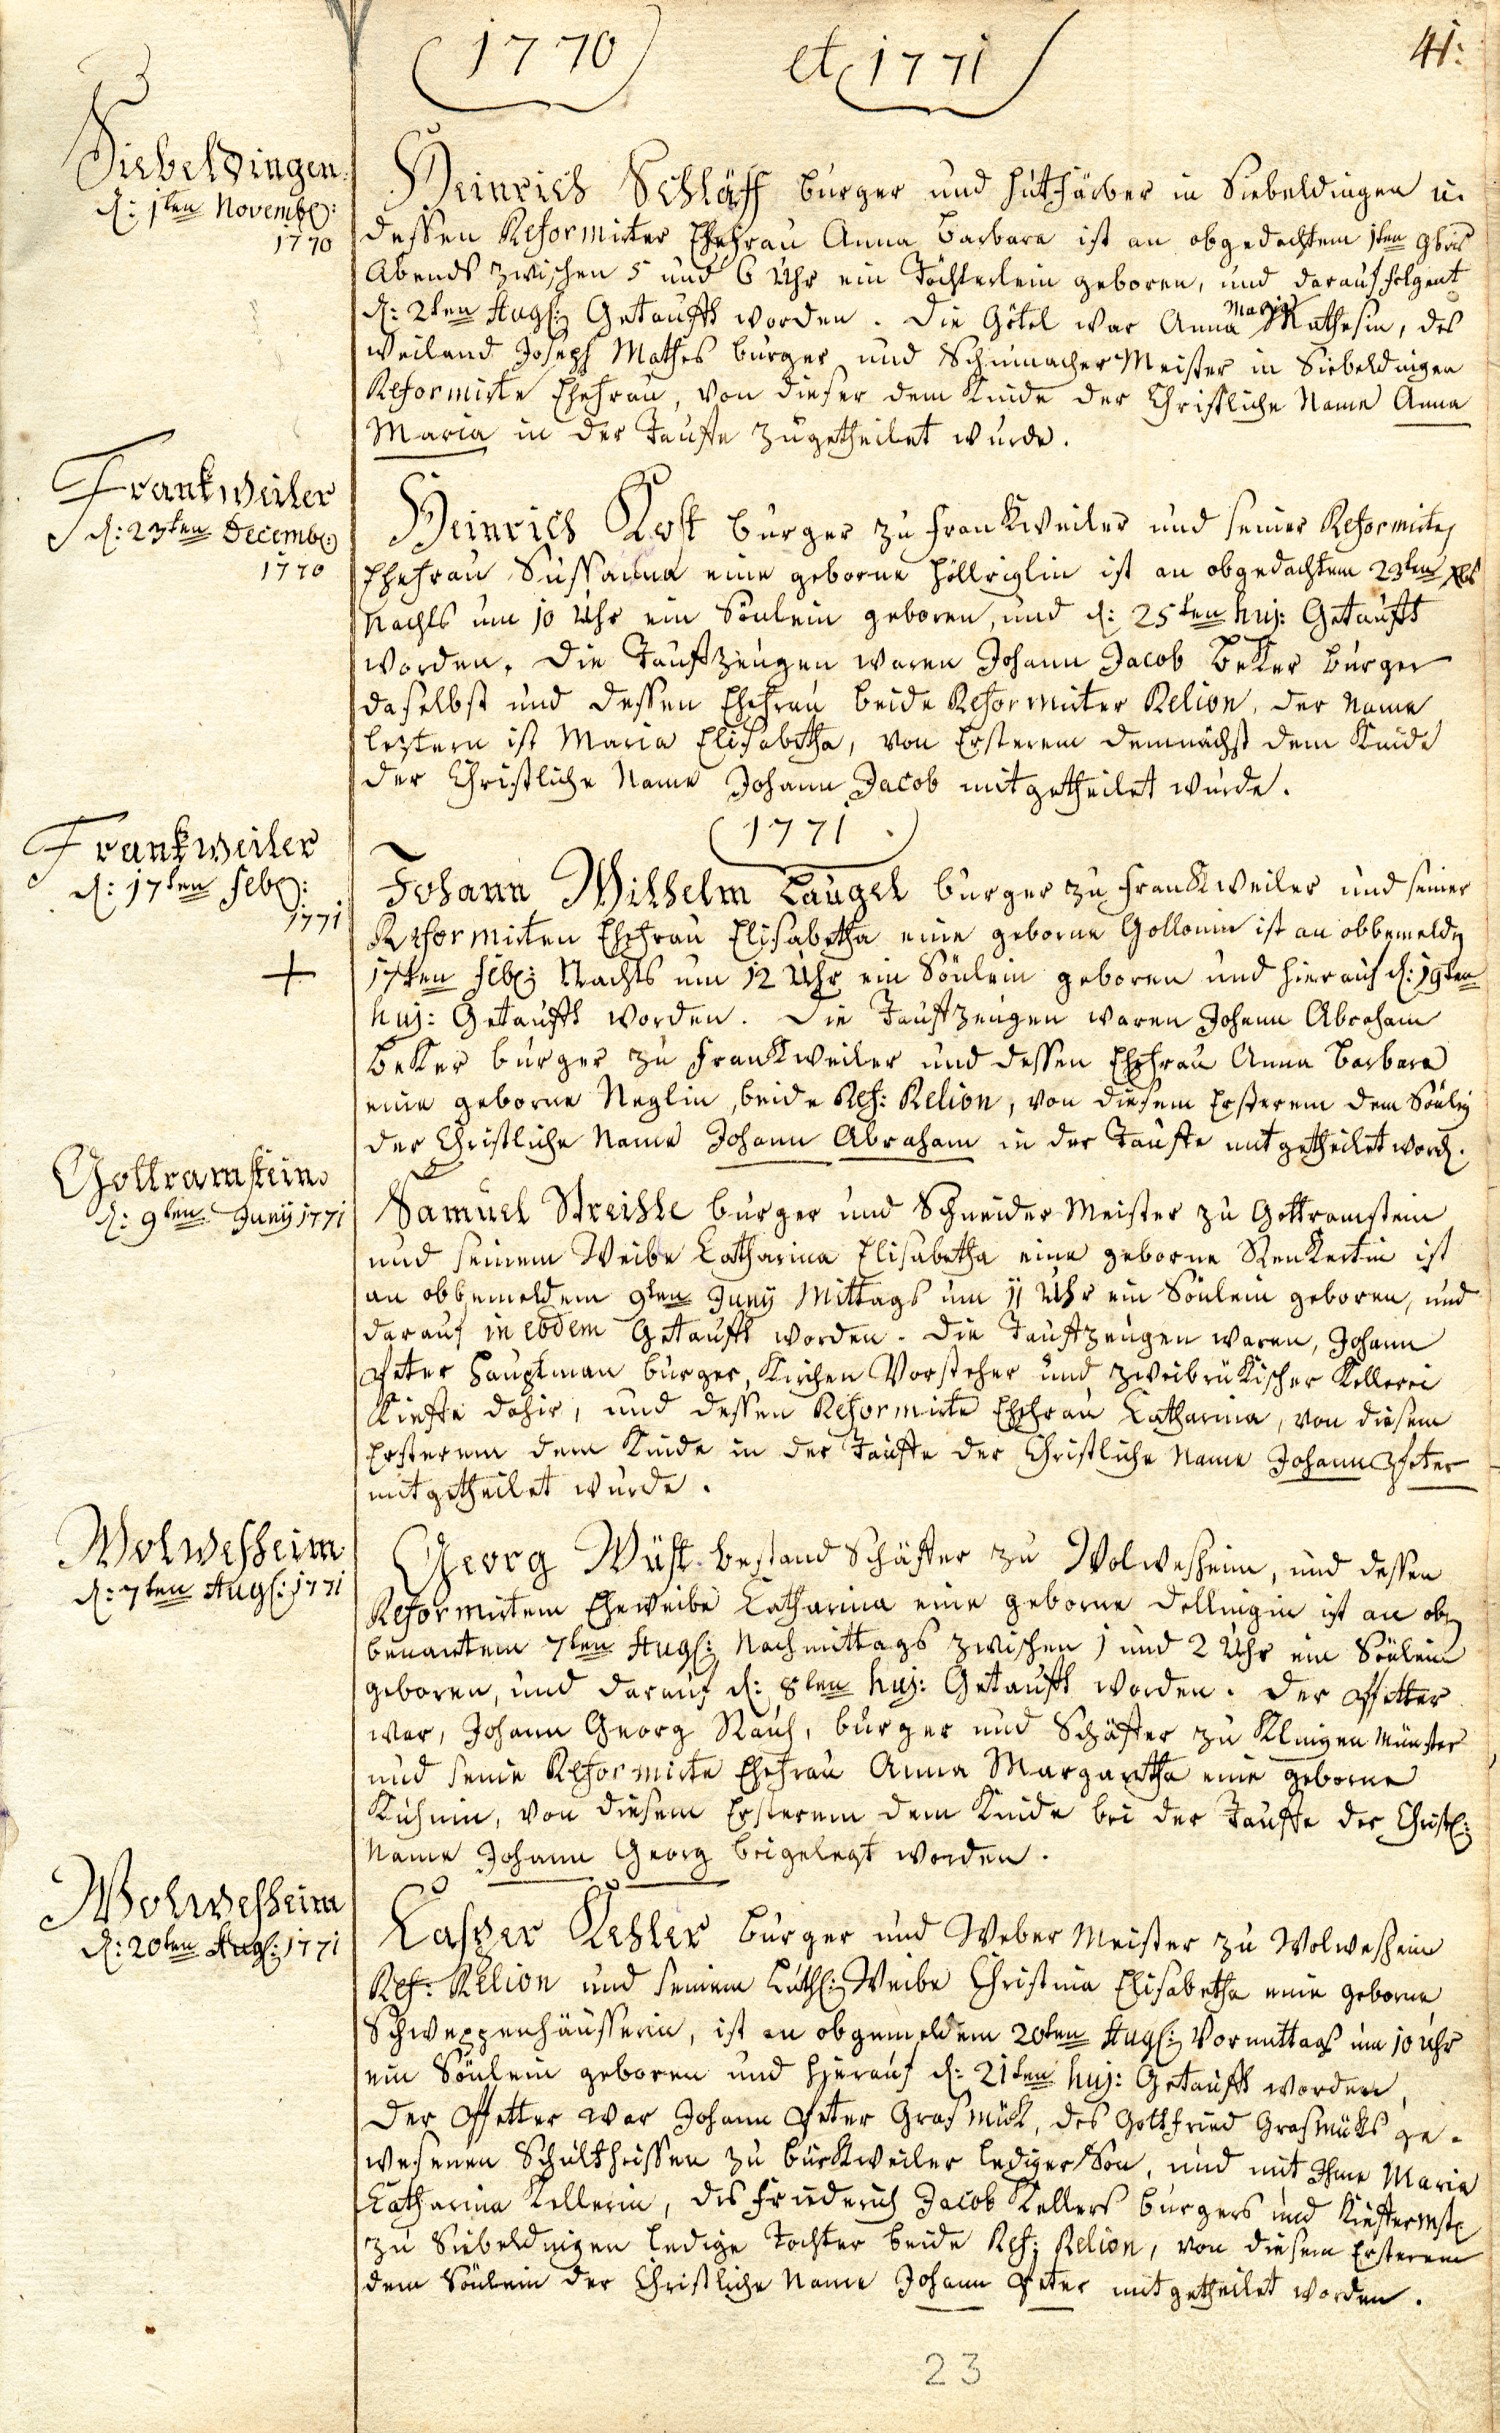 1770 et 1771
41:
Siebeldingen
d: 1ten Novemb:
1770
Heinrich Schläff burger und Huthfärber in Siebeldingen u.
dessen Reformirter Ehefrau Anna Barbara ist an obgedachtem 1ten 9bris
Abends zwischen 5 und 6 Uhr ein Töchterlein geboren, und darauf folgent
d: 2ten Getaufft worden. Die Götel war Anna Maria Mathesin, des
weiland Joseph Mathes burger und Schumacher Meister in Siebeldingen
Reformirte Ehefrau, von dieser dem Kinde der Christliche Name Anna
Maria in der Tauffe zugetheilet wurde.
Frankweiler
d: 23ten Decemb:
1770
Heinrich Kost burger zu Frankweiler und seiner Reformirten
Ehefrau Sussanna eine geborne Höllriglin ist an obgedachtem 23ten Xbr
Nachts um 10 Uhr ein Sönlein geboren, und d: 25ten huj: Getaufft
worden. Die Taufzeugen waren Johann Jacob Beker burger
daselbst und dessen Ehefrau beide Reformirter Relion, der Name
leztern ist Maria Elisabetha, von Ersterem demnächst dem Kinde
der Christliche Name Johann Jacob mitgetheilet wurde.
1771.
Frankweiler
d: 17ten Feb:
1771
+
Johann Wilhelm Laugel burger zu Frankweiler und seiner
Reformirten Ehefrau Elisabetha eine geborne Gollonin ist an obbemeldem
17ten Feb: Nachts um 12 Uhr ein Sönlein geboren und hierauf d: 19ten
huj: Getaufft worden. Die Taufzeugen waren Johann Abraham
Beker burger zu Frankweiler und dessen Ehefrau Anna Barbara
eine geborne Neglin, beide Ref: Relion, von diesem Ersterem dem Sönlein
der Christliche Name Johann Abraham in der Tauffe mitgetheilet word.
Gottramstein
d: 9ten Juny 1771
Samuel Streihle burger und Schneider Meister zu Gottramstein
und seinem Weibe Catharina Elisabetha eine geborne Renkertin ist
an obbemeldem 9ten Juny Mittags um 11 Uhr ein Sönlein geboren, und
darauf in eodem Getaufft worden. Die Taufzeugen waren, Johann
Peter Hauptman burger, Kirchen Vorsteher und zweibrükischer Kellerei
Kieffe dahir, und dessen Reformirte Ehefrau Catharina, von diesem
Ersterem dem Kinde in der Tauffe der Christliche Name Johann Peter
mitgetheilet wurde.
Wolwesheim
d: 7ten Aug: 1771
Georg Wüst bestand Schäffer zu Wolwesheim, und dessen
Reformirtem Eheweibe Catharina eine geborne Dellingin ist an ob
benantem 7ten Aug: Nachmittags zwischen 1 und 2 Uhr ein Sönlein
geboren, und darauf d: 8ten huj: Getaufft worden. Der Pfetter
war, Johann Georg Rauch, burger und Schäffer zu Klingen Münster
und seine Reformirte Ehefrau Anna Margaretha eine geborne
Kuhnin, von diesem Ersterem dem Kinde bei der Tauffe der Christl:
Name Johann Georg beigelegt worden.
Wolwesheim
d: 20ten Aug: 1771
Casper Kehler burger und Weber Meister zu Wolwesheim
Ref: Relion und seinem Luth: Weibe Christina Elisabetha eine geborne
Schweppenhäusserin, ist an obgemeldem 20ten Aug: Vormittags um 10 Uhr
ein Sönlein geboren und hierauf d: 21ten huj: Getaufft worden,
Der Pfetter war Johann Peter Grasmük, des Gottfried Grasmüks ge-
wesenen Schultheissen zu Burkweiler lediger Son, und mit Ihme Maria
Catharina Kellerin, des Friederich Jacob Kellers burgers und Kieffermstr
zu Siebeldingen ledige Tochter beide Ref: Relion, von diesem Ersterem
dem Sönlein der Christliche Name Johann Peter mitgetheilet worden.
23